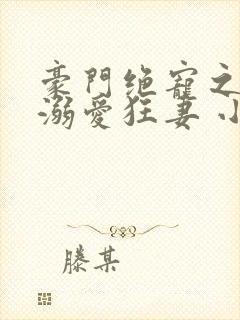 豪門绝寵之
溺愛狂妻小
滕某